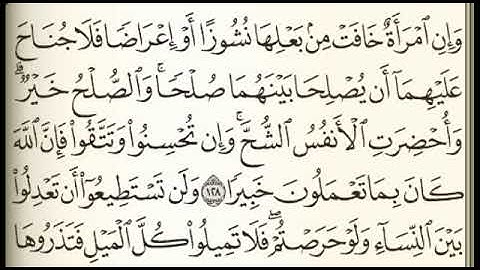 وَإِنِ ٱمۡرَأَةٌ خَافَتۡ مِنۢ بَعۡلِهَا نُشُوزًا أَوۡ إِعۡرَاضٗا فَلَا جُنَاحَ
عَلَيۡهِمَآ أَن يُصۡلِحَا بَيۡنَهُمَا صُلۡحٗاۚ وَٱلصُّلۡحُ خَيۡرٞۗ
وَأُحۡضِرَتِ ٱلۡأَنفُسُ ٱلشُّحَّۚ وَإِن تُحۡسِنُواْ وَتَتَّقُواْ فَإِنَّ ٱللَّهَ
كَانَ بِمَا تَعۡمَلُونَ خَبِيرٗا ١٢٨ وَلَن تَسۡتَطِيعُوٓاْ أَن تَعۡدِلُواْ
بَيۡنَ ٱلنِّسَآءِ وَلَوۡ حَرَصۡتُمۡۖ فَلَا تَمِيلُواْ كُلَّ ٱلۡمَيۡلِ فَتَذَرُوهَا